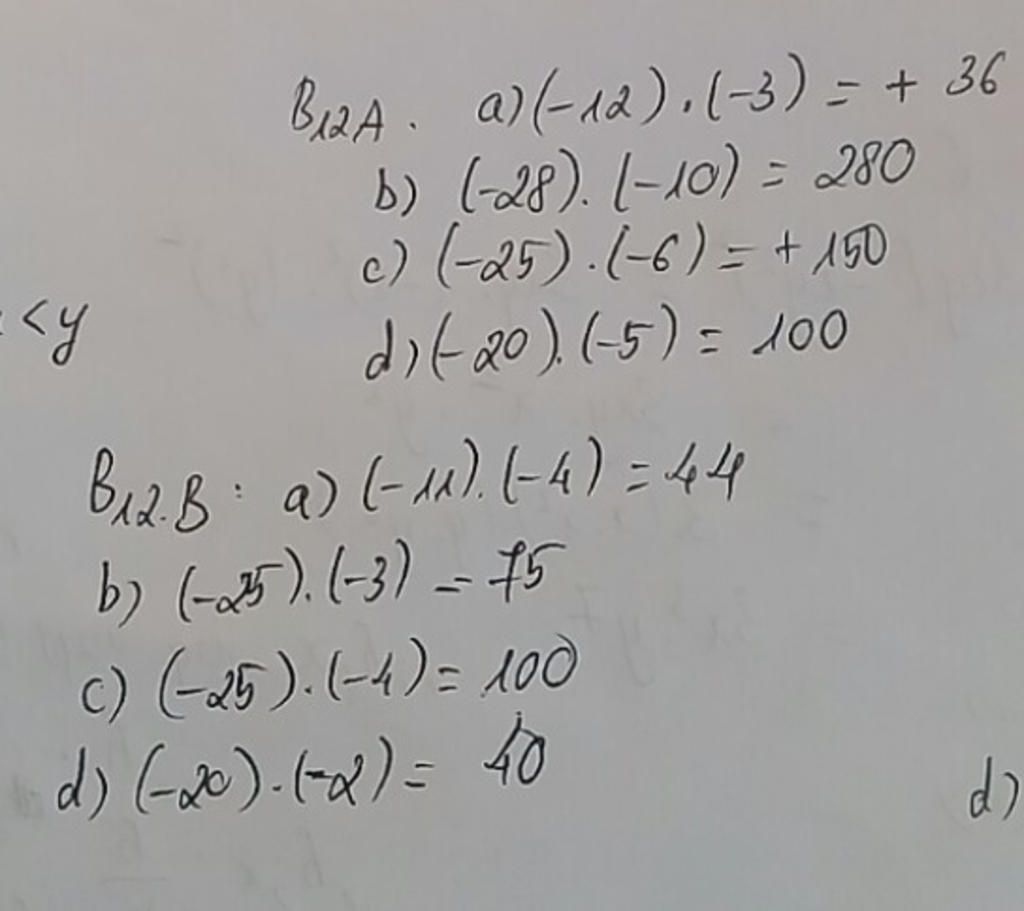 B12A. a) (-12).(-3) = + 36
b) (-28).(-10) = 280
c) (-25).(-6) = + 150
<y
d) (-20).(-5) = 100
B12.B: a) (-11).(-4) = 44
b) (-25).(-3) = 75
c) (-25).(-4) = 100
d) (-20).(-2) = 40
d)